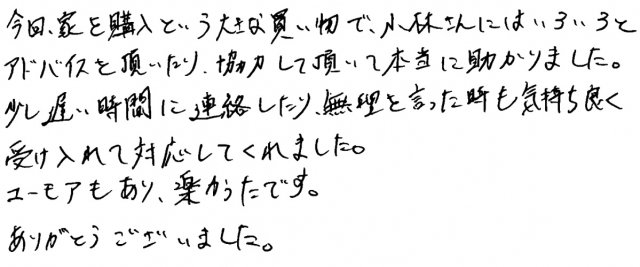 今回、家を購入という大きな買い物で、小林さんにはいろいろと
アドバイスを頂いたり、協力して頂いて本当に助かりました。
少し遅い時間に連絡したり、無理を言った時も気持ち良く
受け入れて対応してくれました。
ユーモアもあり、楽かったです。
ありがとうございました。